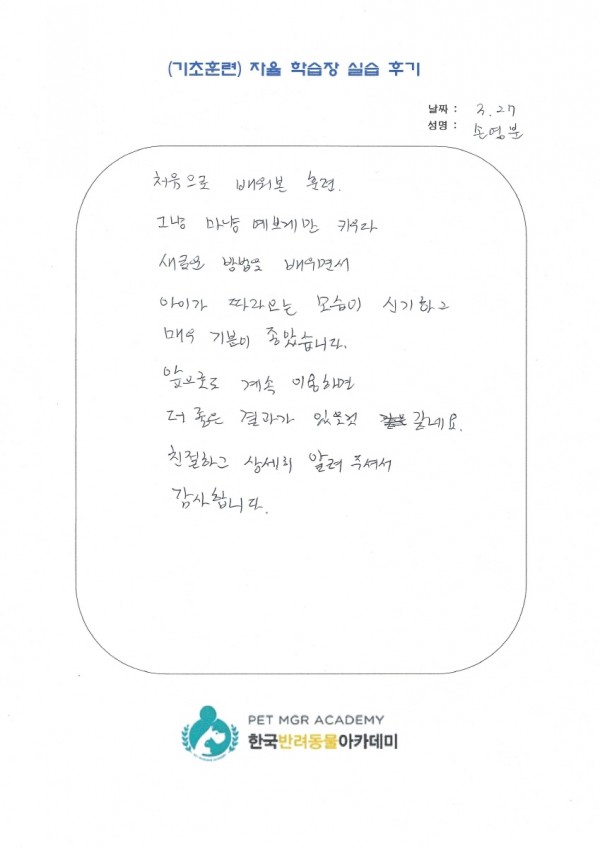 (기초훈련) 자율 학습장 실습 후기
날짜 : 3. 27
성명 : 손영분
처음으로 배워본 훈련.
그냥 마냥 예쁘게만 키우다
새로운 방법을 배우면서
아이가 따라오는 모습이 신기하고
매우 기분이 좋았습니다.
앞으로도 계속 이용하면
더 좋은 결과가 있을것 같네요.
친절하고 상세히 알려 주셔서
감사합니다.
PET MGR ACADEMY
한국반려동물아카데미